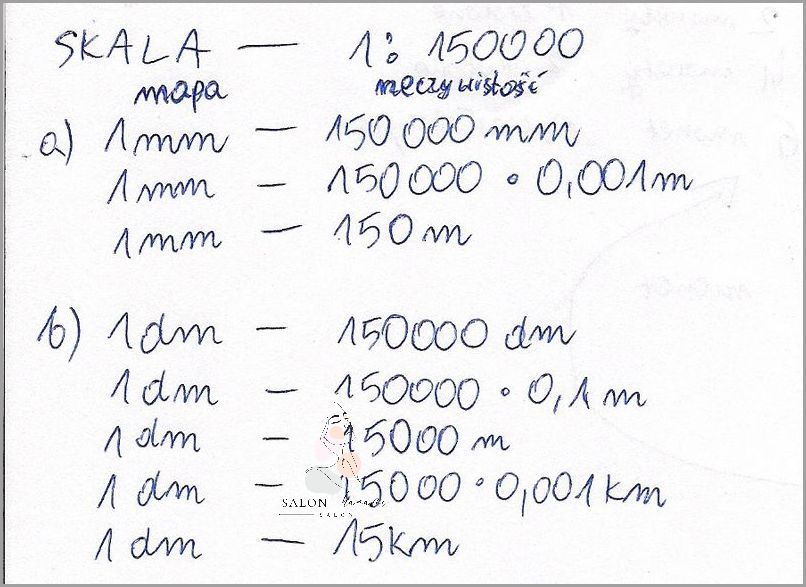 SKALA — 1 : 150000
mapa rzeczywistość
a) 1mm — 150 000 mm
1mm — 150000 • 0,001m
1mm — 150 m
b) 1dm — 150000 dm
1dm — 150000 • 0,1m
1dm — 15000 m
1dm — 15000 • 0,001km
SALON
SALON
1dm — 15km